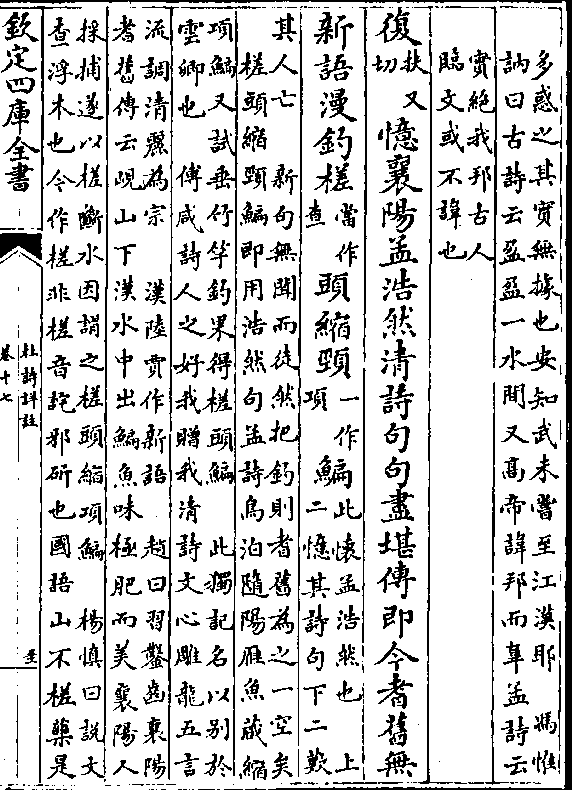 多惑之其實無據也安知武未嘗至江漢耶　馮惟
訥曰古詩云盈盈一水間又高帝諱邦而韋孟詩云
實絶我邦古人
臨文或不諱也
復扶又切憶襄陽孟浩然清詩句句盡堪傳即今耆舊無
新語漫釣槎當作查頭縮頸一作項鯿此懷孟浩然也　上二憶其詩句下二歎
其人亡　新句無聞而徒然把釣則耆舊為之一空矣
槎頭縮頸鯿即用浩然句孟詩鳥泊隨陽雁魚藏縮
項鯿又試垂竹竿釣果得槎頭鯿　此獨記名以别於
雲卿也　傅咸詩人之好我贈我清詩文心雕龍五言
流調清麗為宗　漢陸賈作新語　趙曰習鑿齒襄陽
耆舊傳云峴山下漢水中出鯿魚味極肥而美襄陽人
採捕遂以槎斷水因謂之槎頭縮項鯿　楊慎曰説文
查浮木也今作槎非槎音詫邪斫也國語山不槎蘖是
欽定四庫全書
杜詩詳註
卷十七